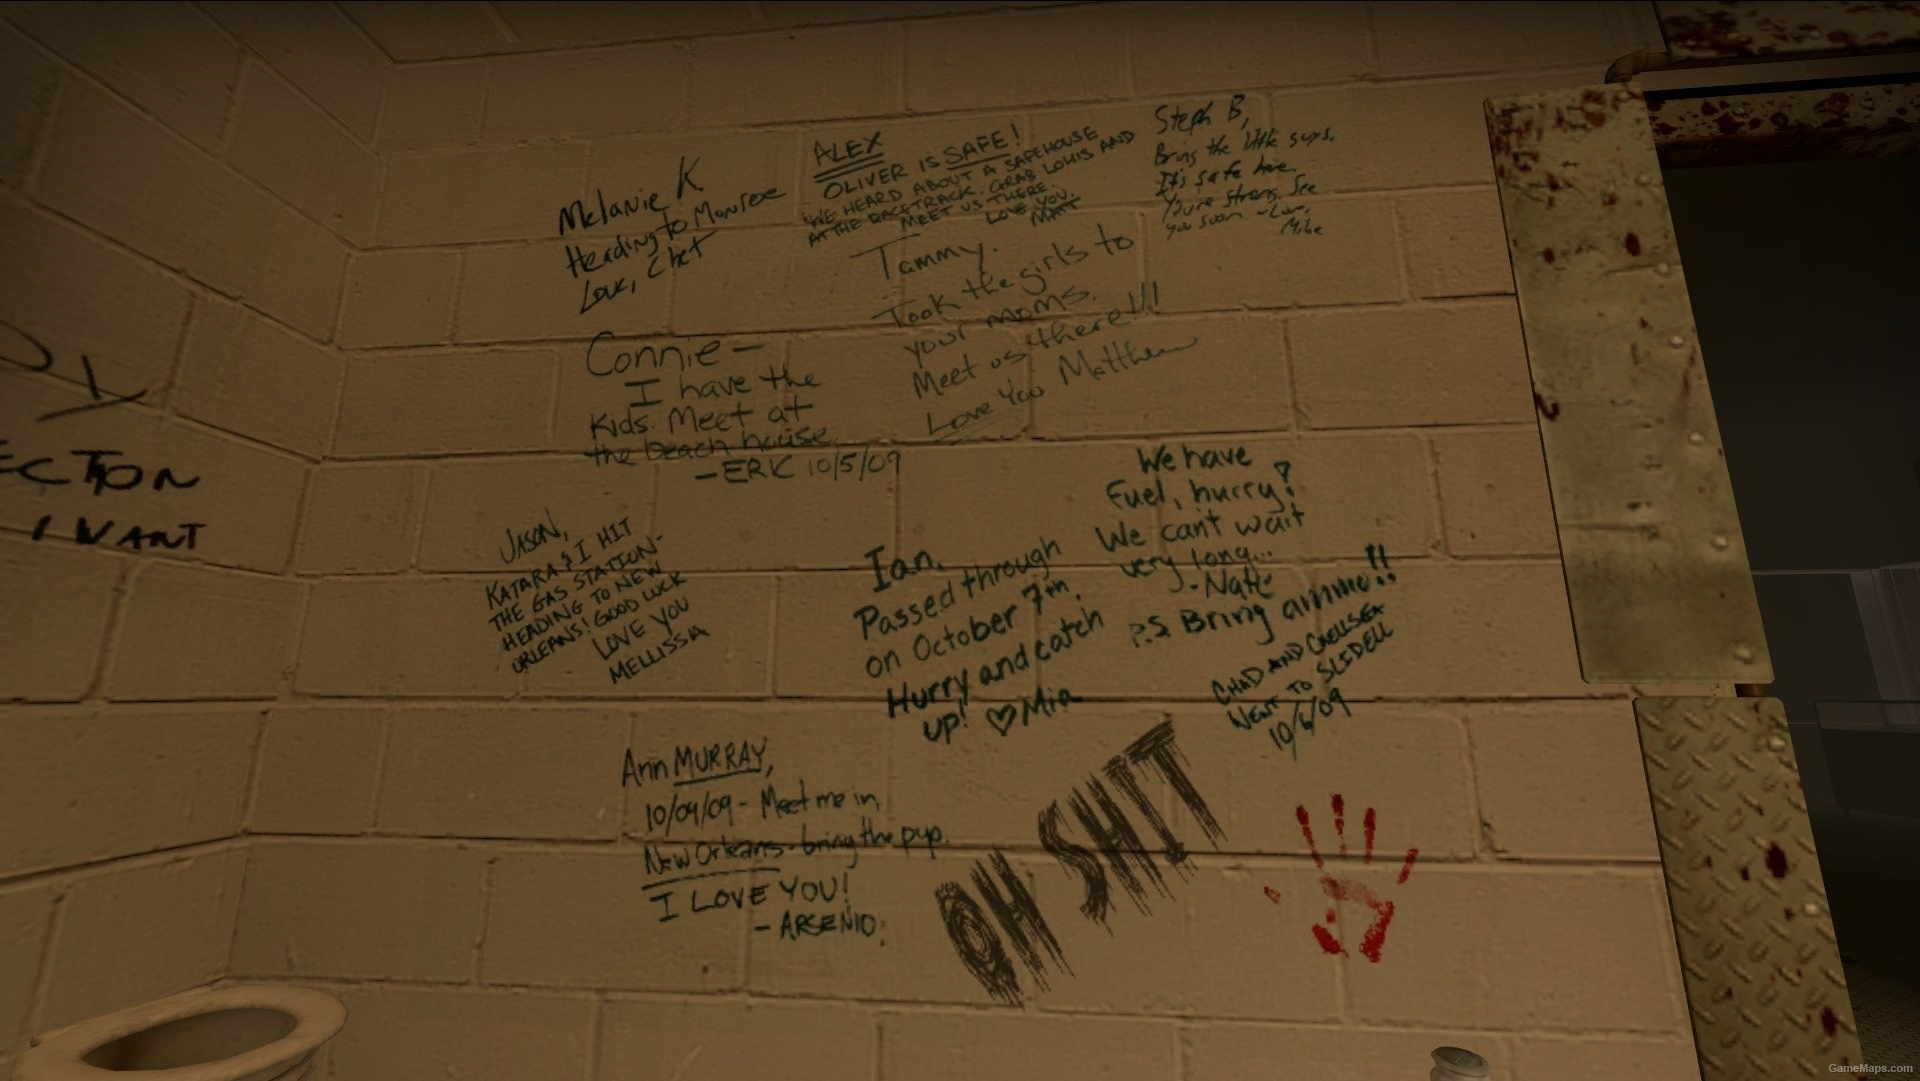 Melanie K.
Heading to Monroe
Love, Chet
ALEX
OLIVER IS SAFE!
WE HEARD ABOUT A SAFEHOUSE
AT THE RACETRACK. GRAB LOUIS AND
MEET US THERE.
LOVE YOU.
MATT
Steph B,
Bring the little guys.
It's safe here.
You're strong. See
you soon - Luv,
Mike
Tammy.
Took the girls to
your moms.
Meet us there!!!
Love You Matthew
Connie -
I have the
Kids. Meet at
the beach house.
- ERIC 10/5/09
ECTION
I WANT
JASON,
KATARA & I HIT
THE GAS STATION-
HEADING TO NEW
ORLEANS! GOOD LUCK
LOVE YOU
MELLISSA
Ian,
Passed through
on October 7th.
Hurry and catch
up! ♡ Mia
We have
Fuel, hurry!
We can't wait
very long...
- Nate
P.S Bring ammo!!
CHAD AND
WENT TO SLIDELL
10/6/09
Ann MURRAY,
10/09/09 - Meet me in
New Orleans - bring the pup.
I LOVE YOU!
- ARSENIO.
OH SHIT
GameMaps.com